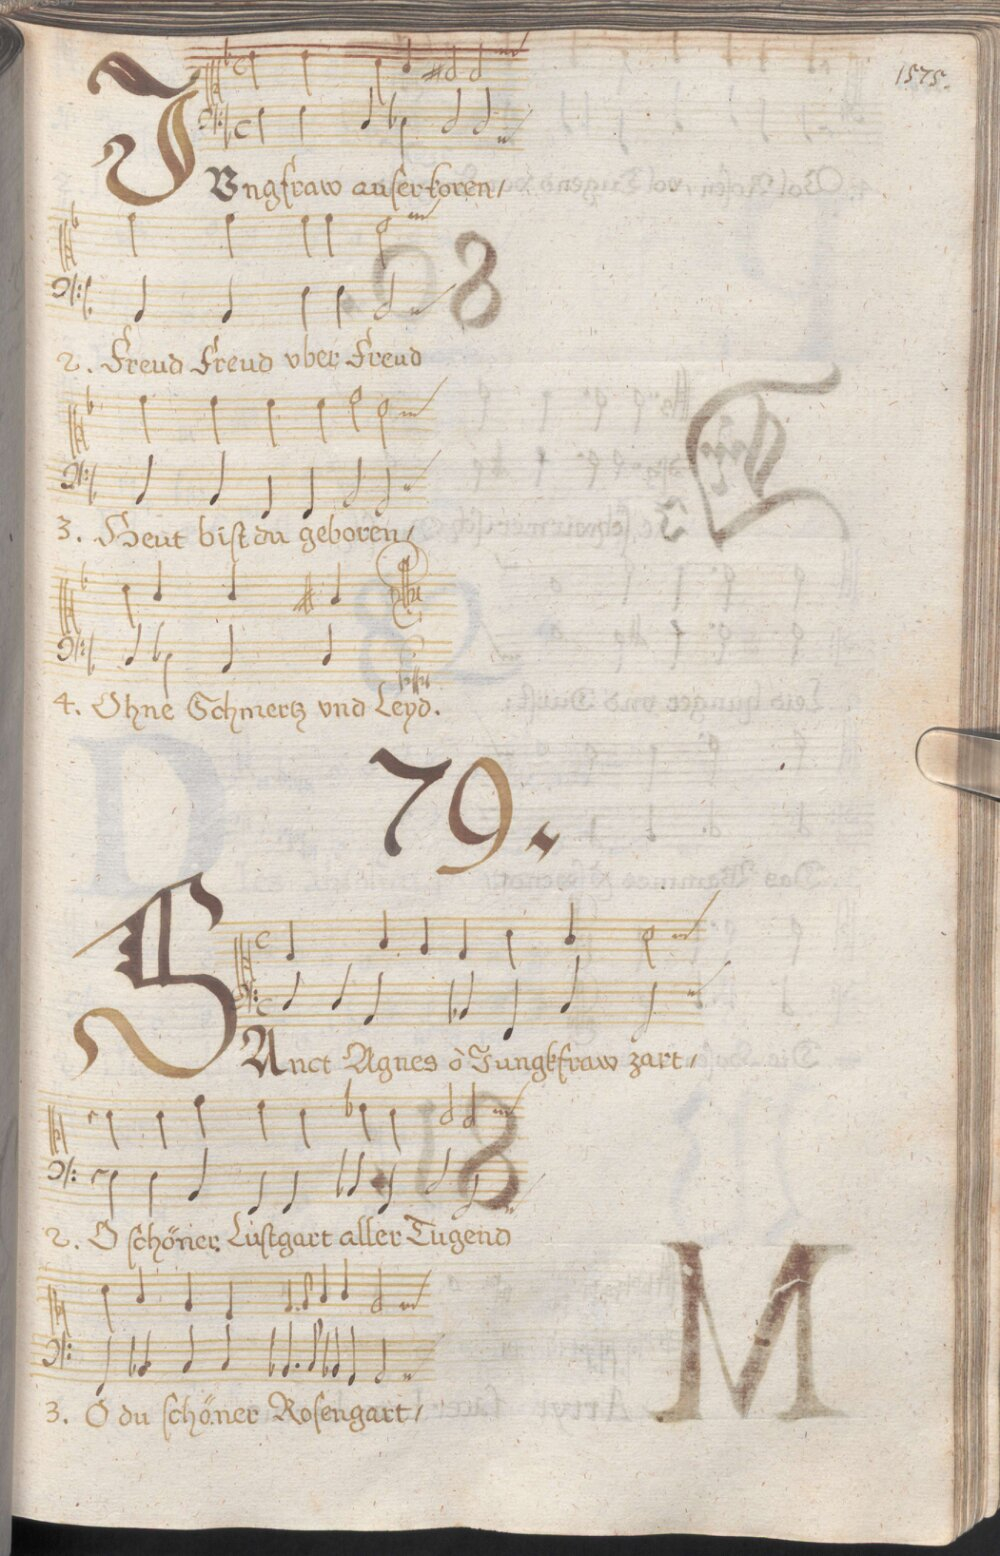 1575.
JVngfraw auserkoren/
2. Freud Freud vber Freud
3. Heut bist du geboren/
4. Ohne Schmertz vnd Leyd.
79.
SAnct Agnes ô Jungkfraw zart/
2. O schöner Lustgart aller Tugend
3. O du schöner Rosengart/